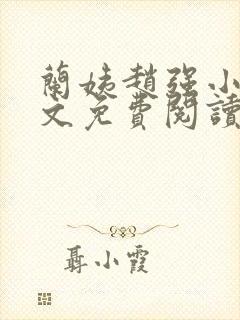 蘭姨趙強小
文免費閱讀
聶小霞